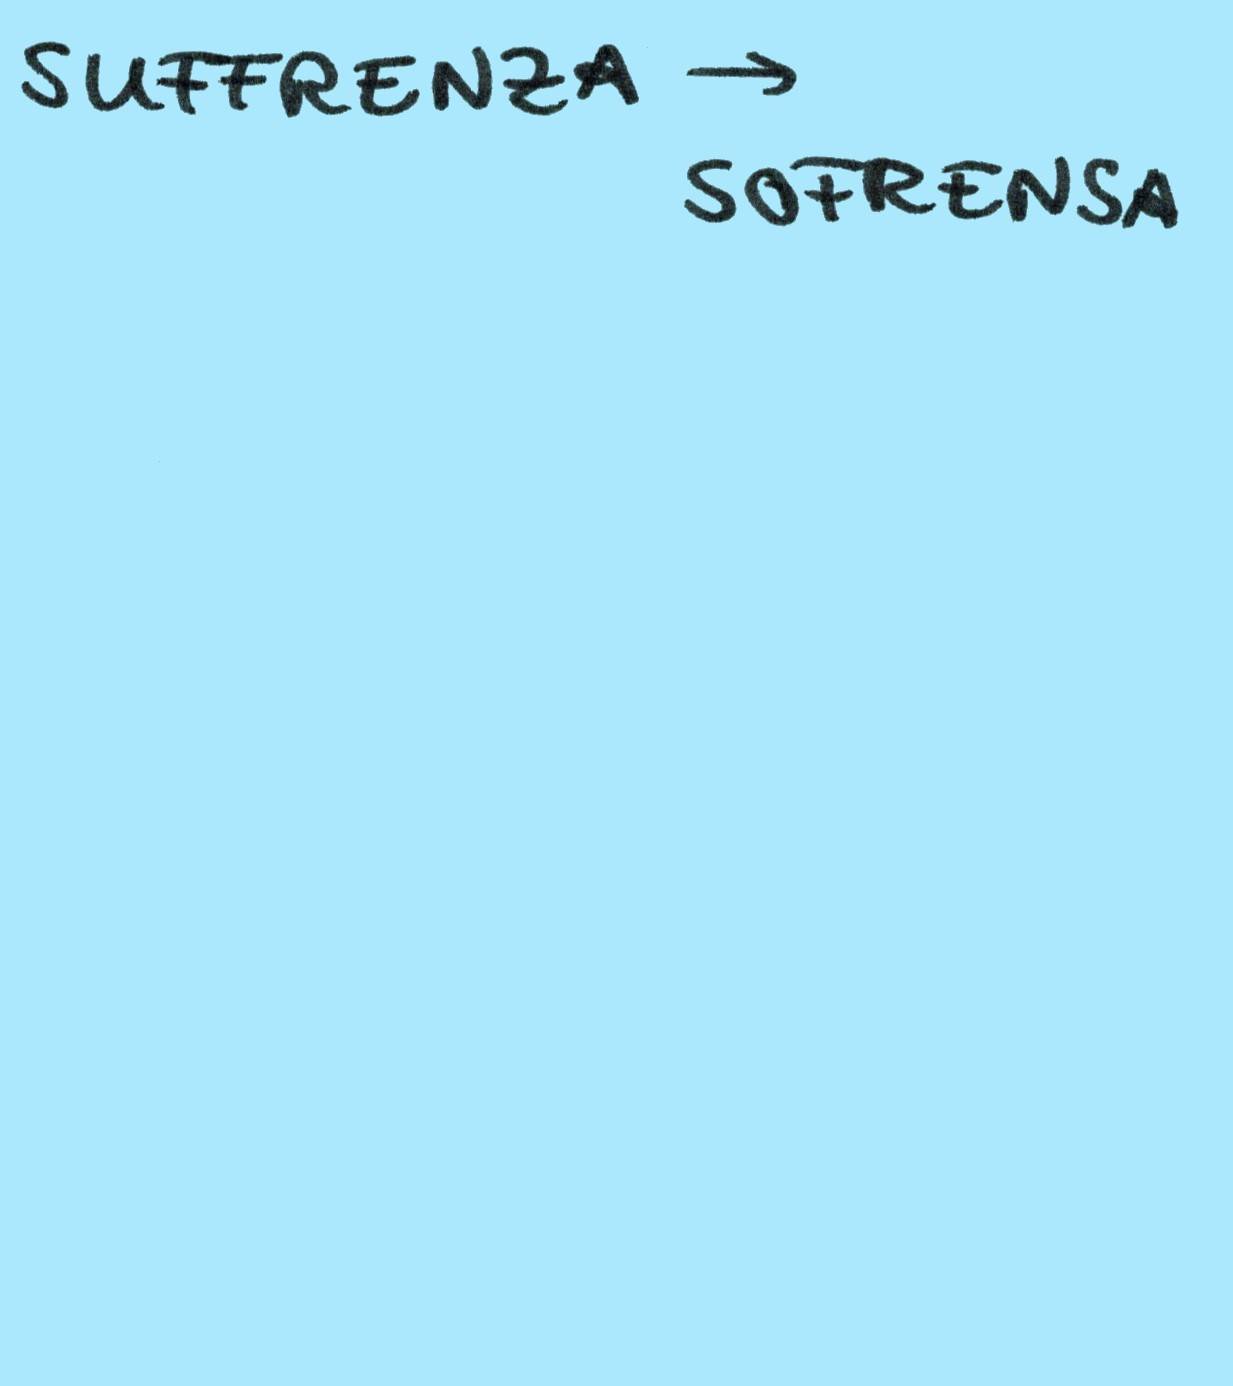 SUFFRENZA →
SOFRENSA